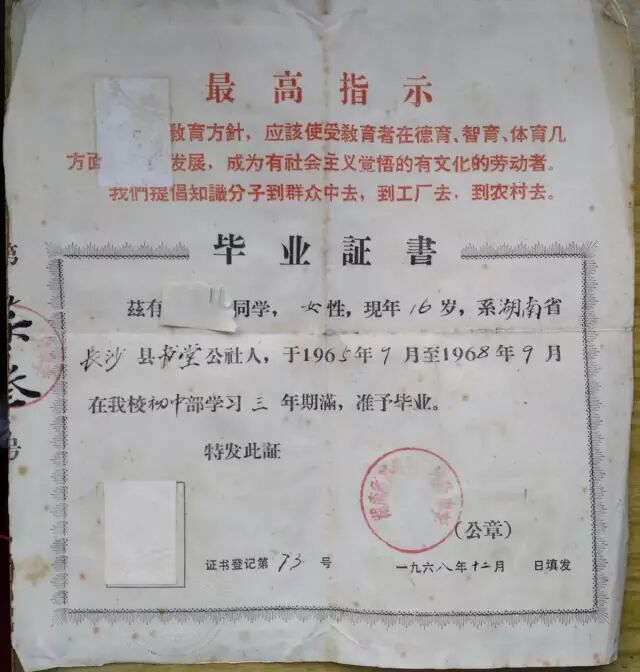 最高指示
教育方針，应該使受教育者在德育、智育、体育几
方面 发展，成为有社会主义觉悟的有文化的劳动者。
我們提倡知識分子到群众中去，到工厂去，到农村去。
毕业証書
茲有 同学，女性，現年16岁，系湖南省
長沙县书堂公社人，于1965年9月至1968年9月
在我校初中部学习三年期滿，准予毕业。
特发此証
（公章）
证书登记第73号
一九六八年十二月 日填发
第
叁
号